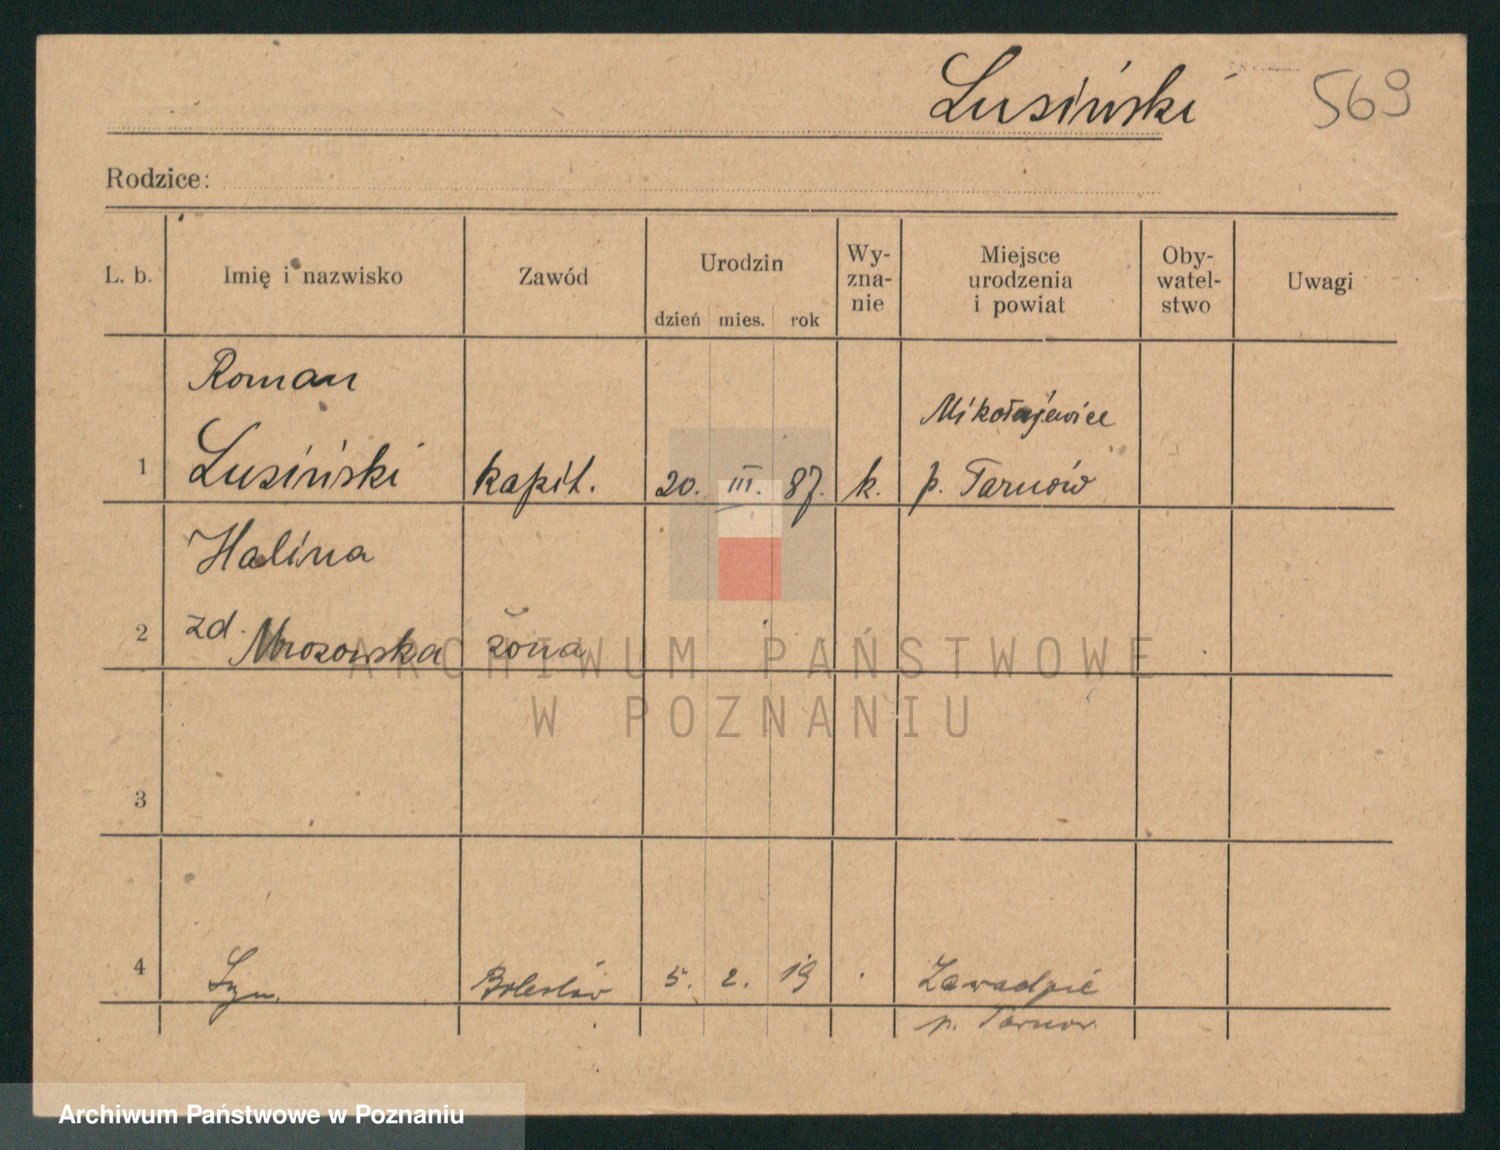 Lusiński 569
Rodzice:
L. b. Imię i nazwisko Zawód Urodzin dzień mies. rok Wy-zna-nie Miejsce urodzenia i powiat Oby-watel-stwo Uwagi
Roman
Mikołajewice
1 Lusiński kapit. 20. III. 87. k. p. Tarnów
Halina
2 zd. Mrozowska żona
ARCHIWUM PAŃSTWOWE
W POZNANIU
3
4 Syn. Bolesław 5. 2. 19
p. Tarnow
Archiwum Państwowe w Poznaniu